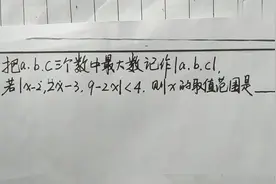 把a.b.c三个数中最大数记作|a.b.c|,
若|x-2,2x-3,9-2x|<4,则x的取值范围是___